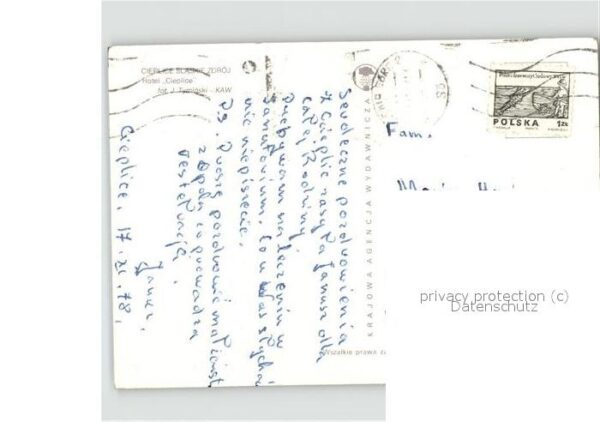 CIEPLICE ŚLĄSKIE ZDRÓJ
Hotel „Cieplice"
fot. J. Tymiński - KAW
KRAJOWA AGENCJA WYDAWNICZA
Wszelkie prawa
POLSKA
1zł
Fam.
Serdeczne pozdrowienia
z Cieplic zasyła Janusz dla
całej Rodziny.
Przebywam na leczeniu w
Sanatorium. Co u Was słychać
nie piszecie.
Ps. Proszę pozdrowić
z Opola co prowadzą
Janusz.
Cieplice, 17.XI.78.
privacy protection (c)
Datenschutz